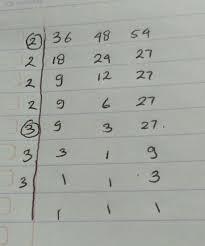 2 36 48 54
2 18 24 27
2 9 12 27
2 9 6 27
3 9 3 27.
3 3 1 9
3 1 1 3
1 1 1